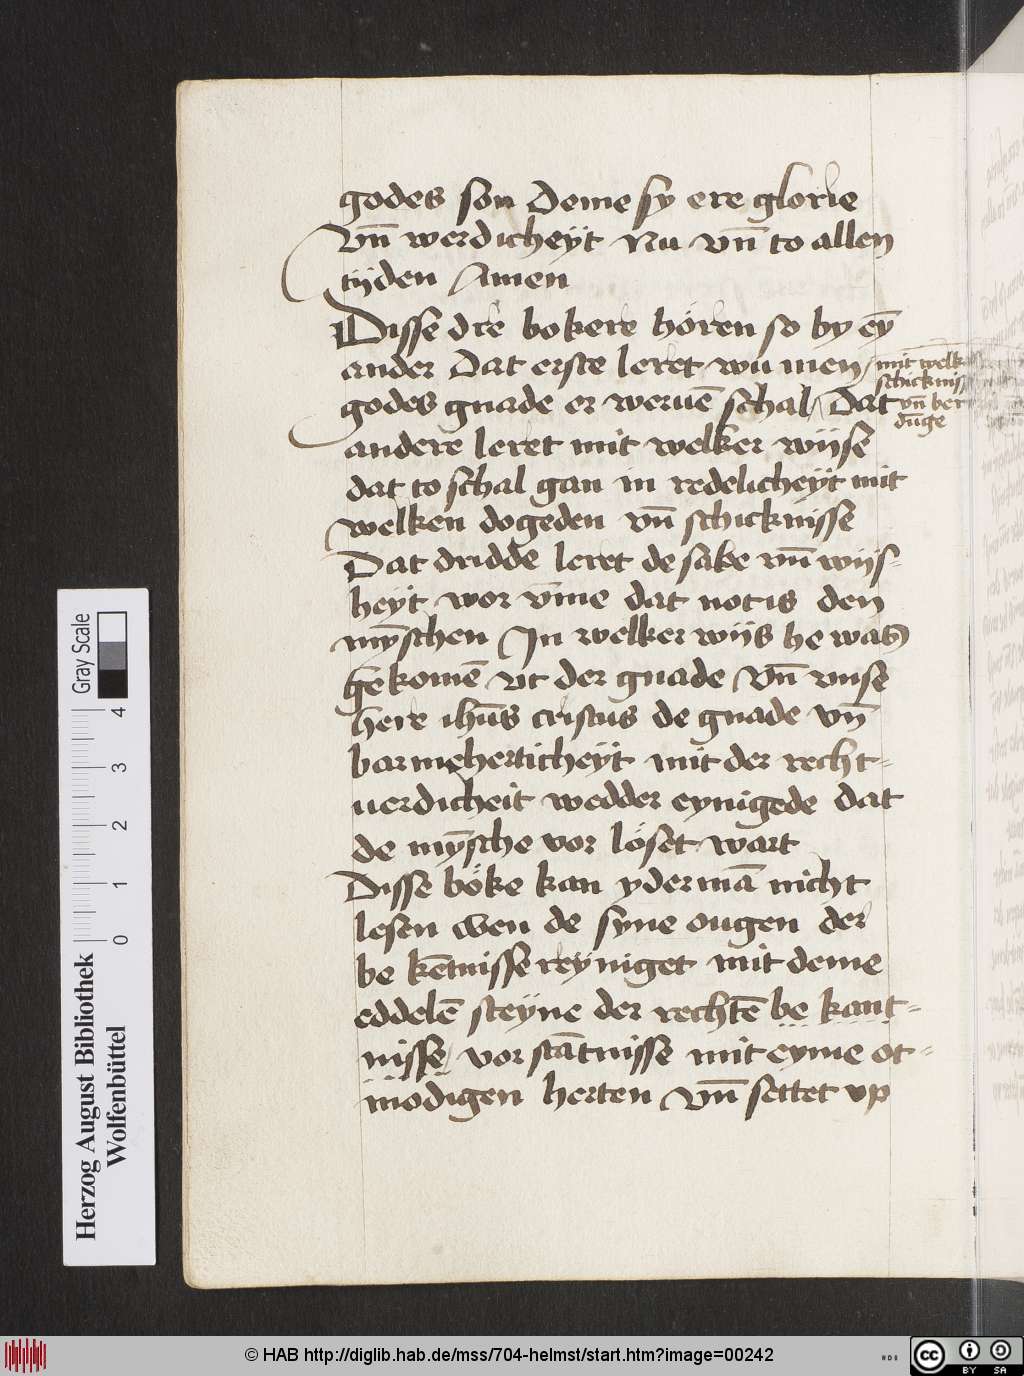 godes son Deme sy ere glorie
vn̄ werdicheÿt Nu vn̄ to allen
tijden Amen
Disse dre bokere hören so by eȳ
ander Dat erste leret wu men / mit welk
schicknis
godes gnade er weruē schal / Dat vn̄ ber
dūge
andere leret mit welker wijse
dat to schal gan in redelicheÿt mit
welken dogeden vn̄ schicknisse
Dat dridde leret de sake vn̄ wijs-
heÿt wor vm̄e dat not is den
mȳschen In welker wijs he was
ghekomē vt der gnade / vn̄ vnse
here ihūs cristus de gnade vn̄
barmeherticheÿt mit der recht-
uerdicheit wedder eynigede dat
de mȳsche vor löset wart
Disse böke kan ydermā nicht
lesen wen de syne ougen der
be kētnisse reÿniget mit deme
eddelē steÿne der rechtē be kant-
nisse / vor stātnisse mit eyme ot-
modigen herten vn̄ settet vp
Herzog August Bibliothek
Wolfenbüttel
Gray Scale
0 1 2 3 4
© HAB http://diglib.hab.de/mss/704-helmst/start.htm?image=00242
cc BY SA